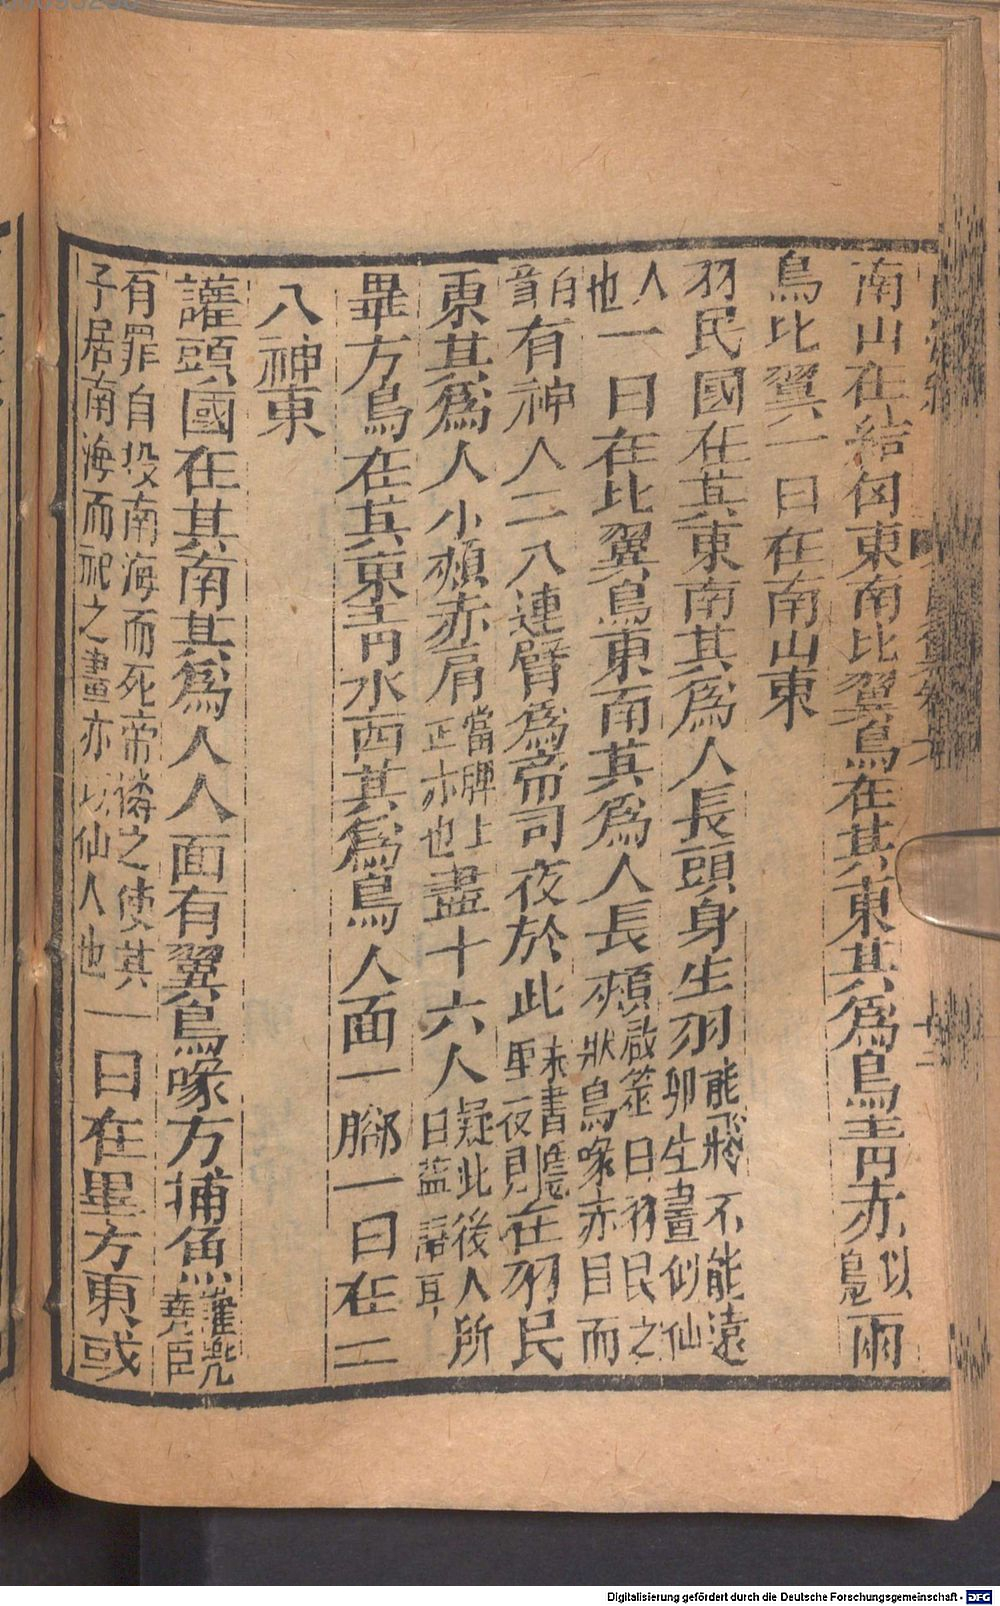 南山在結匈東南比翼鳥在其東其爲鳥青赤似鳧兩
鳥比翼一曰在南山東
羽民國在其東南其爲人長頭身生羽能飛不能遠卵生畫似仙
人也一曰在比翼鳥東南其爲人長頰啟筮曰羽民之狀鳥喙赤目而
白首有神人二八連臂爲帝司夜於此晝隱夜見在羽民
東其爲人小頰赤肩當脾上正赤也盡十六人疑此後人所
畢方鳥在其東青水西其爲鳥人面一腳一曰在二
八神東
讙頭國在其南其爲人人面有翼鳥喙方捕魚讙兜堯臣
有罪自投南海而死帝憐之使其子居南海而祀之畫亦似仙人也一曰在畢方東或
Digitalisierung gefördert durch die Deutsche Forschungsgemeinschaft - DFG